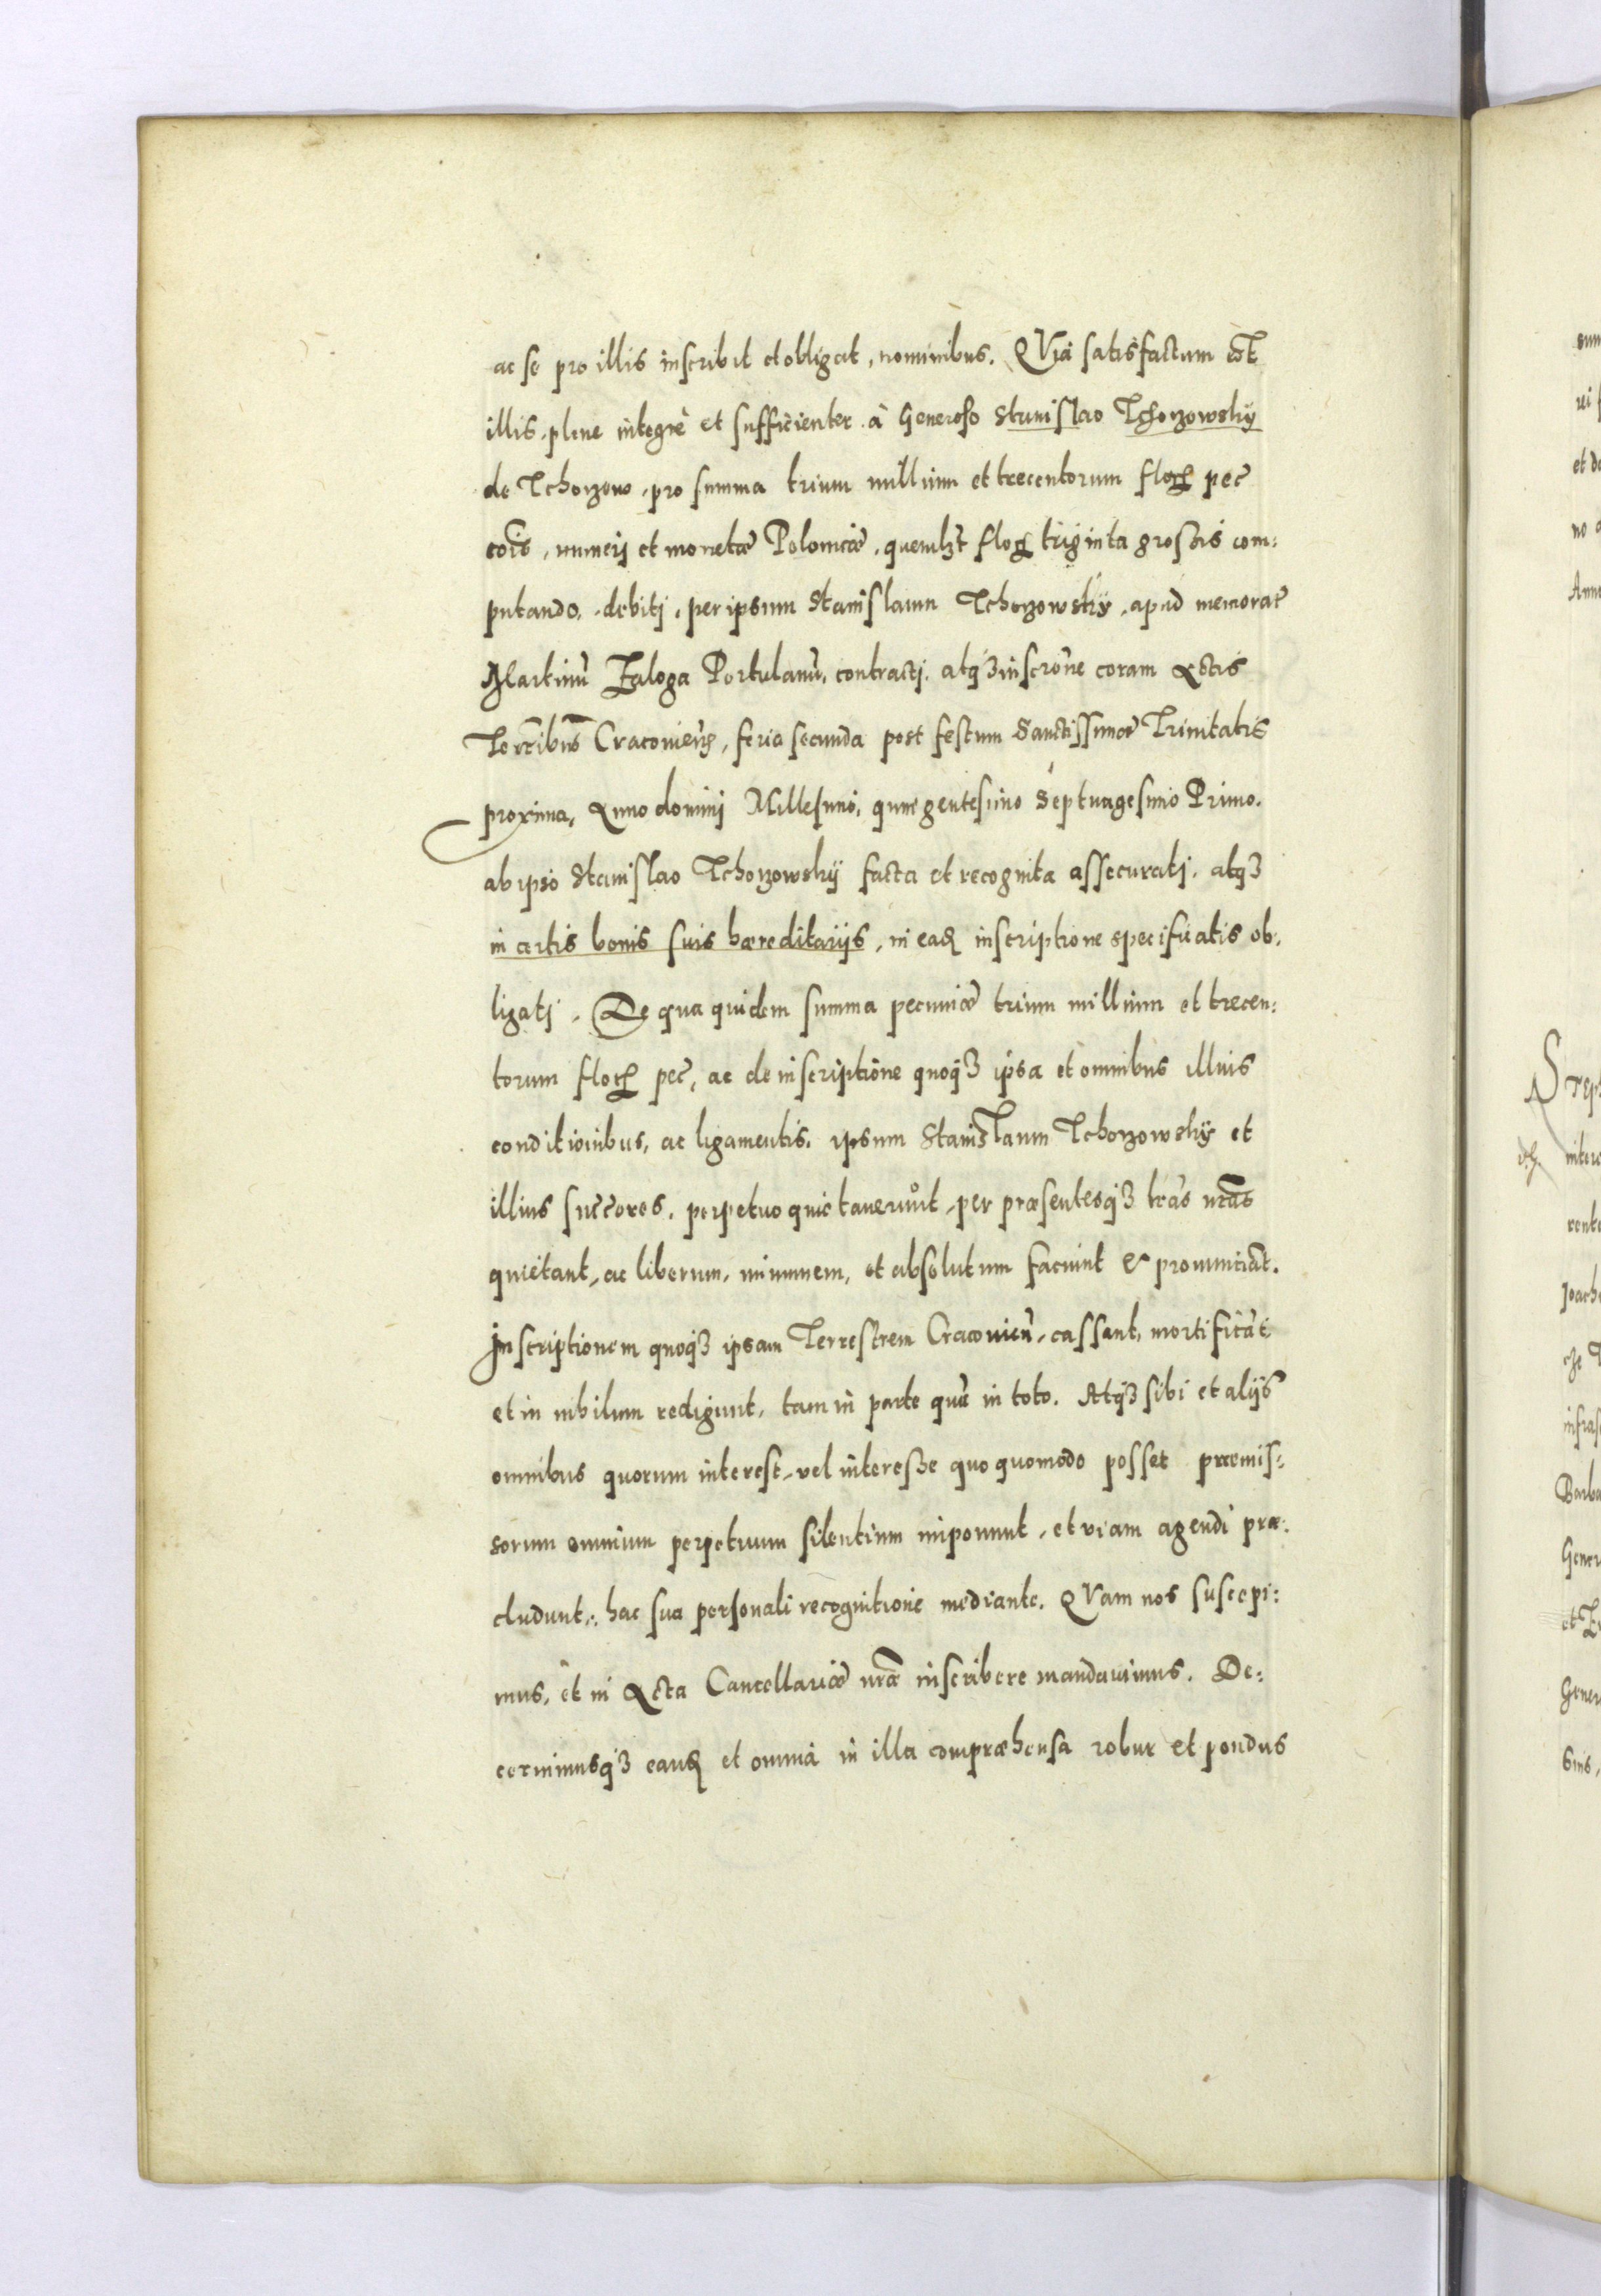 ac se pro illis inscribit et obligat, nominibus. QVia satisfactum est
illis plene integrè et sufficienter à Generoso Stanislao Tchorzowskÿ
de Tchorzow, pro summa trium millium et trecentorum floꝝ pec̃
cõis, numerj et monetæ Polonicæ, quemlꝫt floꝝ triginta grossis com:
putando, debitj, per ipsum Stanislaum Tchorzowskÿ, apud memorat̃
Martinũ Zaloga Portulanũ, contractj, atqꝫ inscrõne coram Actis
Terr̃ibus Cracovieñ, feria secunda post festum Sanctissimæ Trinitatis
proxima, Anno domini Millesimo, quingentesimo Septuagesimo Primo.
ab ipso Stanislao Tchorzowskÿ facta et recognita assecuratj, atqꝫ
in certis bonis suis hæreditarijs, in eadꝫ inscriptione specificatis ob:
ligatj. De qua quidem summa pecuniæ trium millium et trecen:
torum floꝝ pec̃, ac de inscriptione quoqꝫ ipsa et omnibus illius
conditioinibus, ac ligamentis, ipsum Stanislaum Tchorzowskÿ et
illius succ̃ores, perpetuo quietaverunt, per præsentesqꝫ lr̃as nr̃as
quietant, ac liberum, immunem, et absolutum faciunt & pronunciãt.
Inscriptionem quoqꝫ ipsam Terrestrem Cracovieñ, cassant, mortificãt
et in nihilum redigunt, tam in parte quã in toto. Atqꝫ sibi et alijs
omnibus quorum interest, vel interesse quoquomodo posset præmis:
sorum omnium perpetuum silentium imponunt, et viam agendi præ:
cludunt, hac sua personali recognitione mediante. QVam nos suscepi:
mus, et in Acta Cancellariæ nr̃æ inscribere mandavimus. De:
cernimusqꝫ eandꝫ et omnia in illa compræhensa robur et pondus